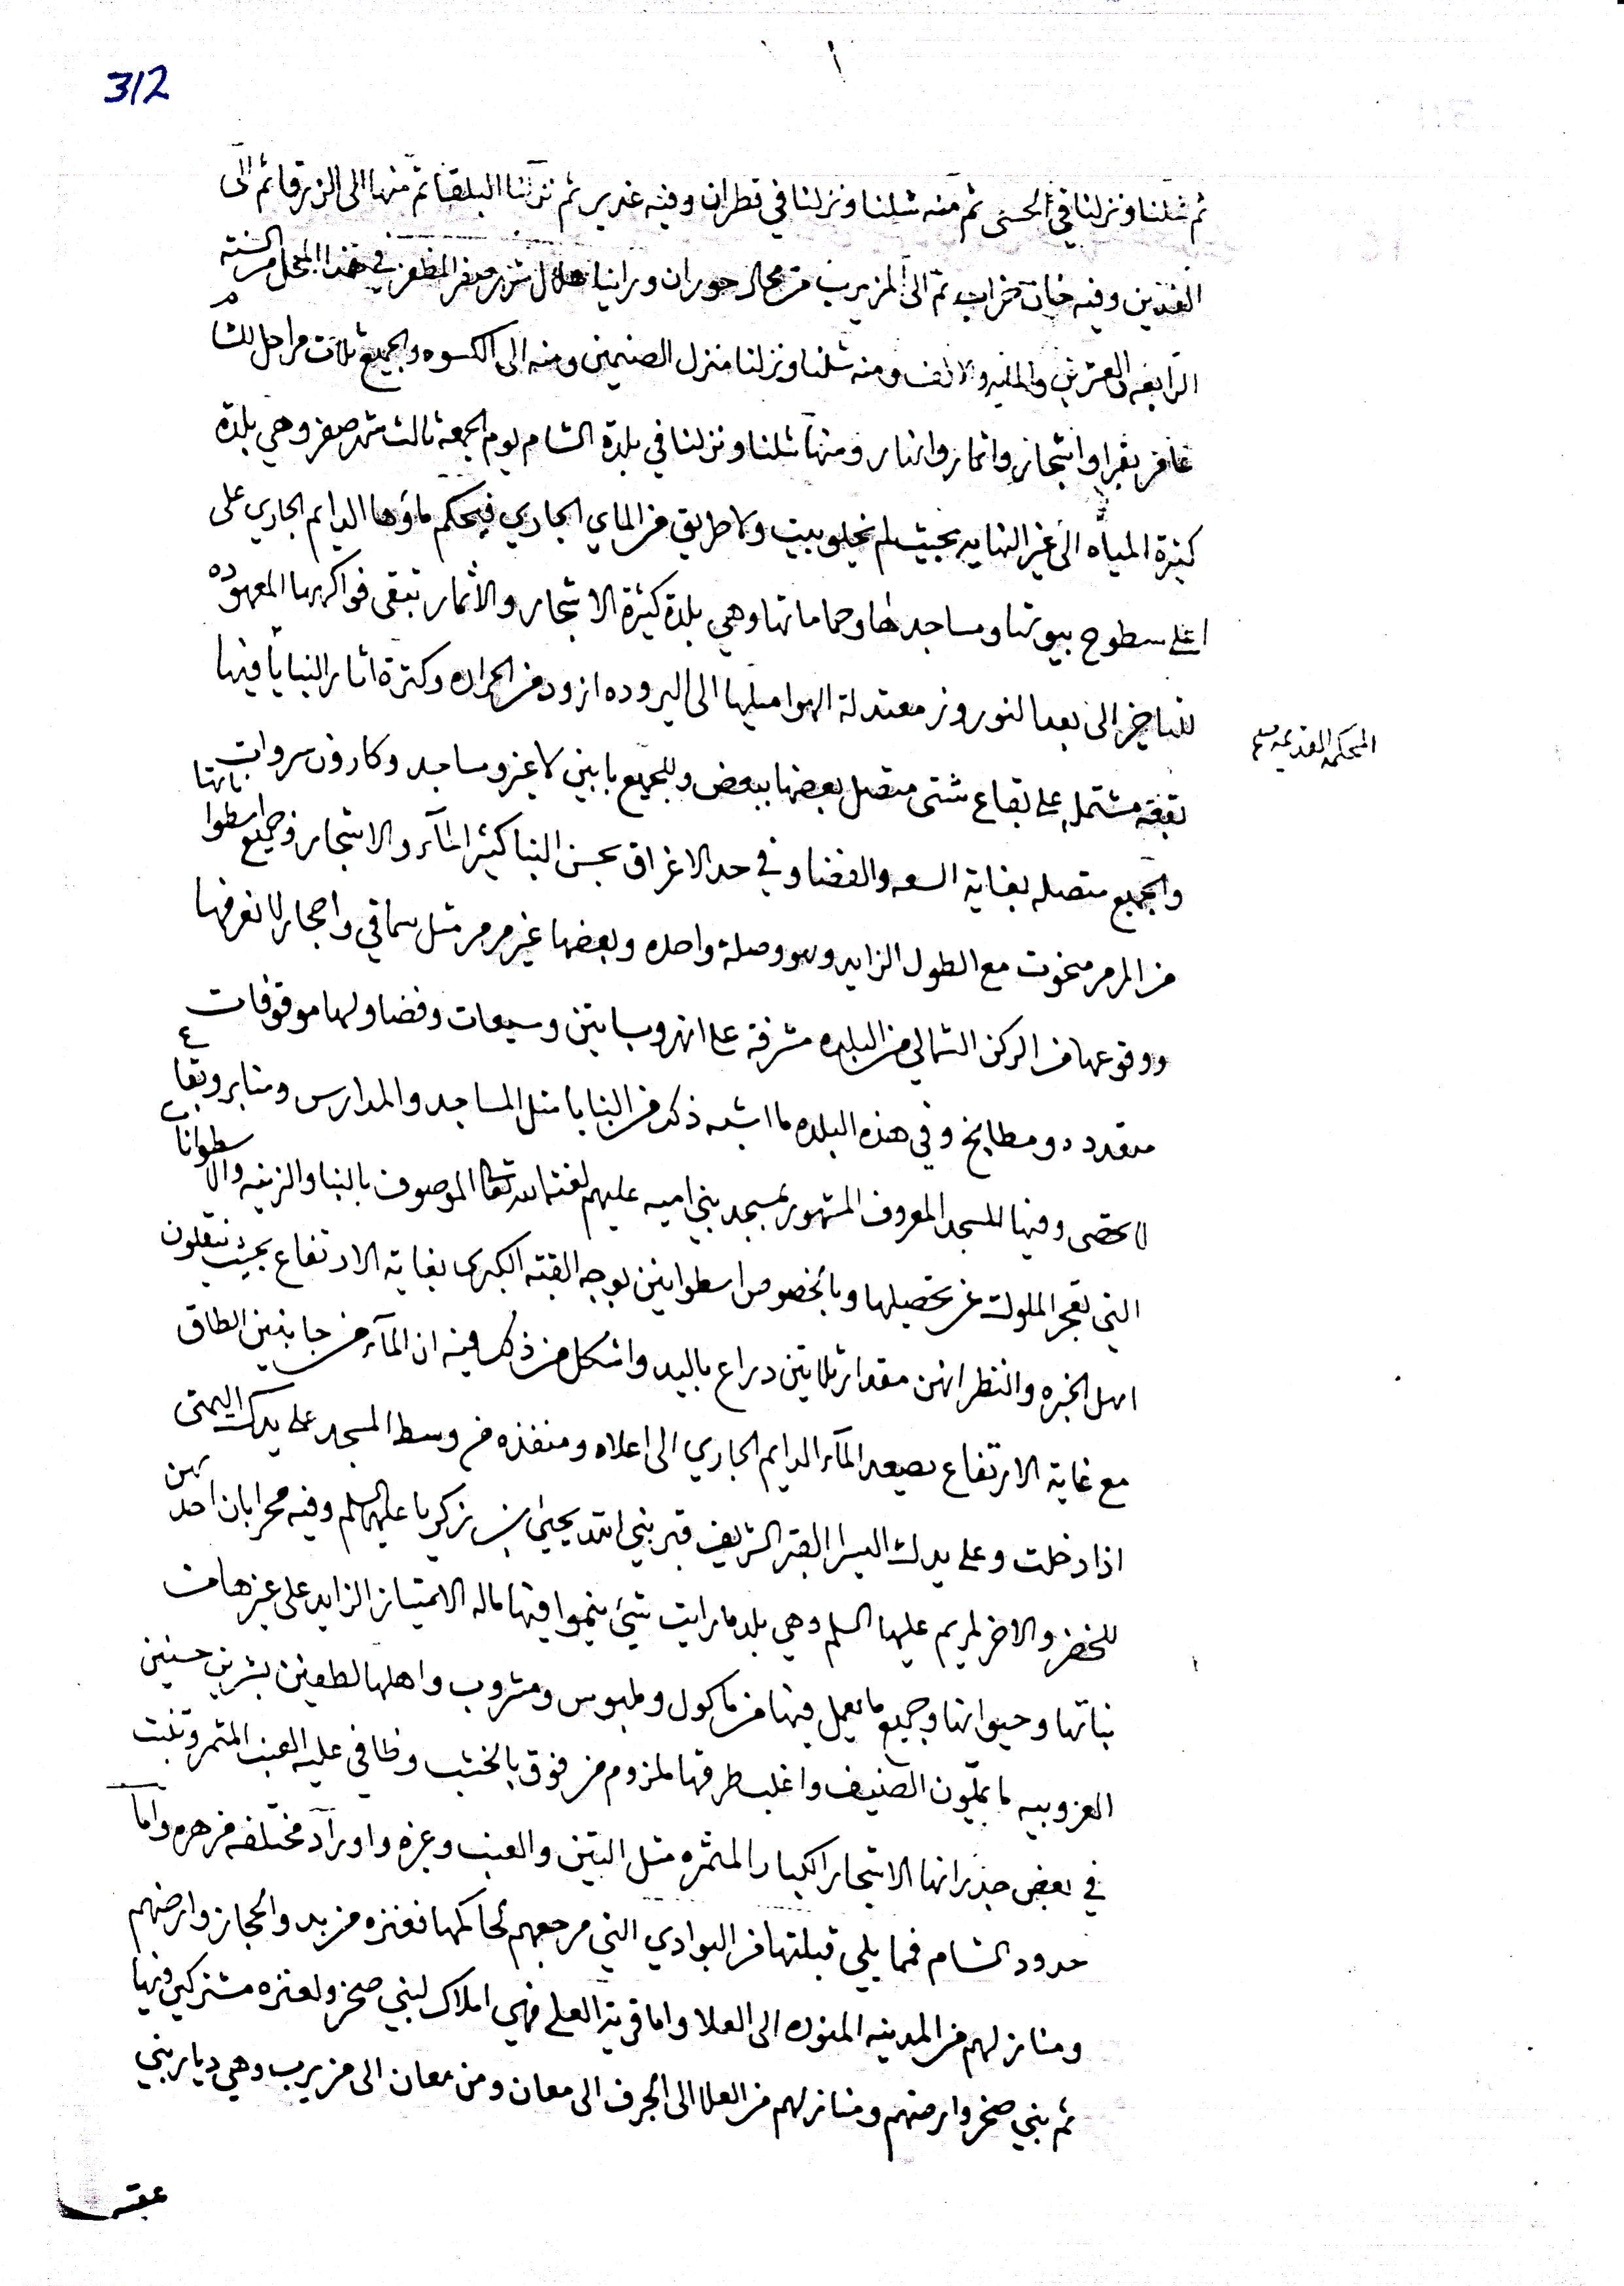 312
ثم شلنا ونزلنا في الحسى ثم منه شلنا ونزلنا في قطران وفيه غدير ثم نزلنا البلقا ثم منها الى الزرقا ثم الى
وفيه خان خراب ثم الى المزيريب من محال حوران وراينا هلال شهر صفر المظفر في هذا المحل من السنة
الرابعه والعشرين والمايه والالف ومنه شلنا ونزلنا منزل الصنيمين ومنه الى الكسوه والجميع ثلاث مراحل للشام
بقرا واشجار واثمار وانهار ومنها شلنا ونزلنا في بلدة الشام يوم الجمعة ثالث شهر صفر وهي بلدة
كثيرة المياه الى غير النهايه بحيث لم يخلو بيت ولا طريق من الماي الجاري فيحكم ماؤها الدايم الجاري على
اعلى سطوح بيوتها ومساجدها وحماماتها وهي بلدة كثيرة الاشجار والاثمار تبقى فواكهها المعهوده
للتاخير الى بعد النوروز معتدلة الهوا ميلها الى البروده ازود من الحراره وكثرة اثار البنايا فيها
المحكمه القديمه
بقعة مشتمله على بقاع شتى متصل بعضها ببعض وللجميع بابين لا غير ومساجد وكاروان سروات
والجميع متصله بغاية السعه والفضا وفي حد الاغراق بحسن البنا كثير المآء والاشجار وجميع اسطواناتها
من المرمر منحوت مع الطول الزايد وهو وصلة واحده وبعضها غير مرمر مثل سماقي واحجار لا نعرفها
ووقوعها من الركن الشمالي من البلده مشرفة على انهر وبساتين وسيعات وفضا ولها موقوفات
متعدده ومطابخ وفي هذه البلده ما اشبه ذكر من البنايا مثل المساجد والمدارس ومنابر وبقاع
لا تحصى وفيها المسجد المعروف المشهور بمسجد بني اميه عليهم لعنة الله تعالى الموصوف بالبنا والزينه والاسطوانات
التي تعجز الملوك عن تحصيلها وبالخصوص اسطوانتين بوجه القبة الكبرى بغاية الارتفاع بحيث ينقلون
اهل الخبره والنظر انهن مقدار ثلاثين دراع باليد واشكل من ذلك فيه ان المآء من جانبين الطاق
مع غاية الارتفاع يصعد المآء الدايم الجاري الى اعلاه ومنفذه من وسط المسجد على يدك اليمنى
اذا دخلت وعلى يدك اليسرا القبر الشريف قبر نبي الله يحيى بن زكريا عليهم السلم وفيه محرابان احدهن
للخضر والاخر لمريم عليها السلم وهي بلد ما رايت شيئ ينموا فيها ماله الامتياز الزايد على غيرها من
نباتها وحيوانها وجميع ما يعمل فيها من ماكول وملبوس ومشروب واهلها لطيفين بشرين حسنين
العزوبيه ما يملون الضيف واغلب طرقها لمزوم من فوق بالخشب وطافي عليه العنب المثمر وتنبت
في بعض جدرانها الاشجار الكبار المثمره مثل التين والعنب وغيره واوراد مختلفه مزهره واما
حدود الشام فمما يلي قبلتها من البوادي التي مرجعهم لحاكمها فعنزه من بدو الحجاز وارضهم
ومنازلهم من المدينه المنوره الى العلا واما قرية العلى فهي املاك لبني صخر ولعنزه مشتركين فيها
ثم بني صخر وارضهم ومنازلهم من العلا الى الجرف الى معان ومن معان الى مزيريب وهي ديار بني